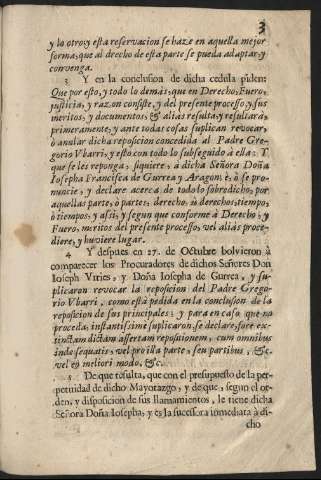 3
y lo otro; y esta reservacion se haze en aquella mejor
forma, que al drecho de esta parte se pueda adaptar, y
convenga.
3 Y en la conclusion de dicha cedula piden:
Que por esto, y todo lo demàs, que en Derecho, Fuero,
justicia, y razon consiste, y del presente processo, y sus
meritos, y documentos, & aliàs resulta, y resultarà,
primeramente, y ante todas cosas suplican revocar,
ò anular dicha reposicion concedida al Padre Gre-
gorio Ubarri, y esto con todo lo subseguido à ella: Y
que se les reponga, siquiere, à dicha Señora Doña
Iosepha Francisca de Gurrea y Aragon: è, ò se pro-
nuncie, y declare acerca de todo lo sobredicho, por
aquellas parte, ò partes; derecho, ù derechos; tiempo,
ò tiempos; y assi, y segun que conforme à Derecho, y
Fuero, meritos del presente processo, vel aliàs proce-
diere, y huviere lugar.
4 Y despues en 27. de Octubre bolvieron à
comparecer los Procuradores de dichos Señores Don
Ioseph Vries, y Doña Iosepha de Gurrea, y su-
plicaron revocar la reposicion del Padre Grego-
rio Ubarri, como està pedida en la conclusion de la
reposicion de sus principales; y para en caso que no
proceda, instantissimè suplicaron, se declare, fore ex-
tinctam dictam assertam repositionem, cum omnibus
inde sequutis, vel pro illa parte, seu partibus, &c.
vel en meliori modo, &c.
5 De que resulta, que con el presupuesto de la per-
petuidad de dicho Mayorazgo, y de que, segun el or-
den, y disposicion de sus llamamientos, le tiene dicha
Señora Doña Iosepha, y es la sucessora inmediata à di-
cho